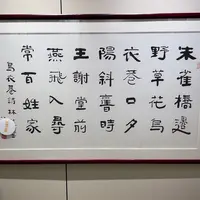 朱雀橋邊
野草花烏
衣巷口夕
陽斜舊時
王謝堂前
燕飛入尋
常百姓家
烏衣巷詩林